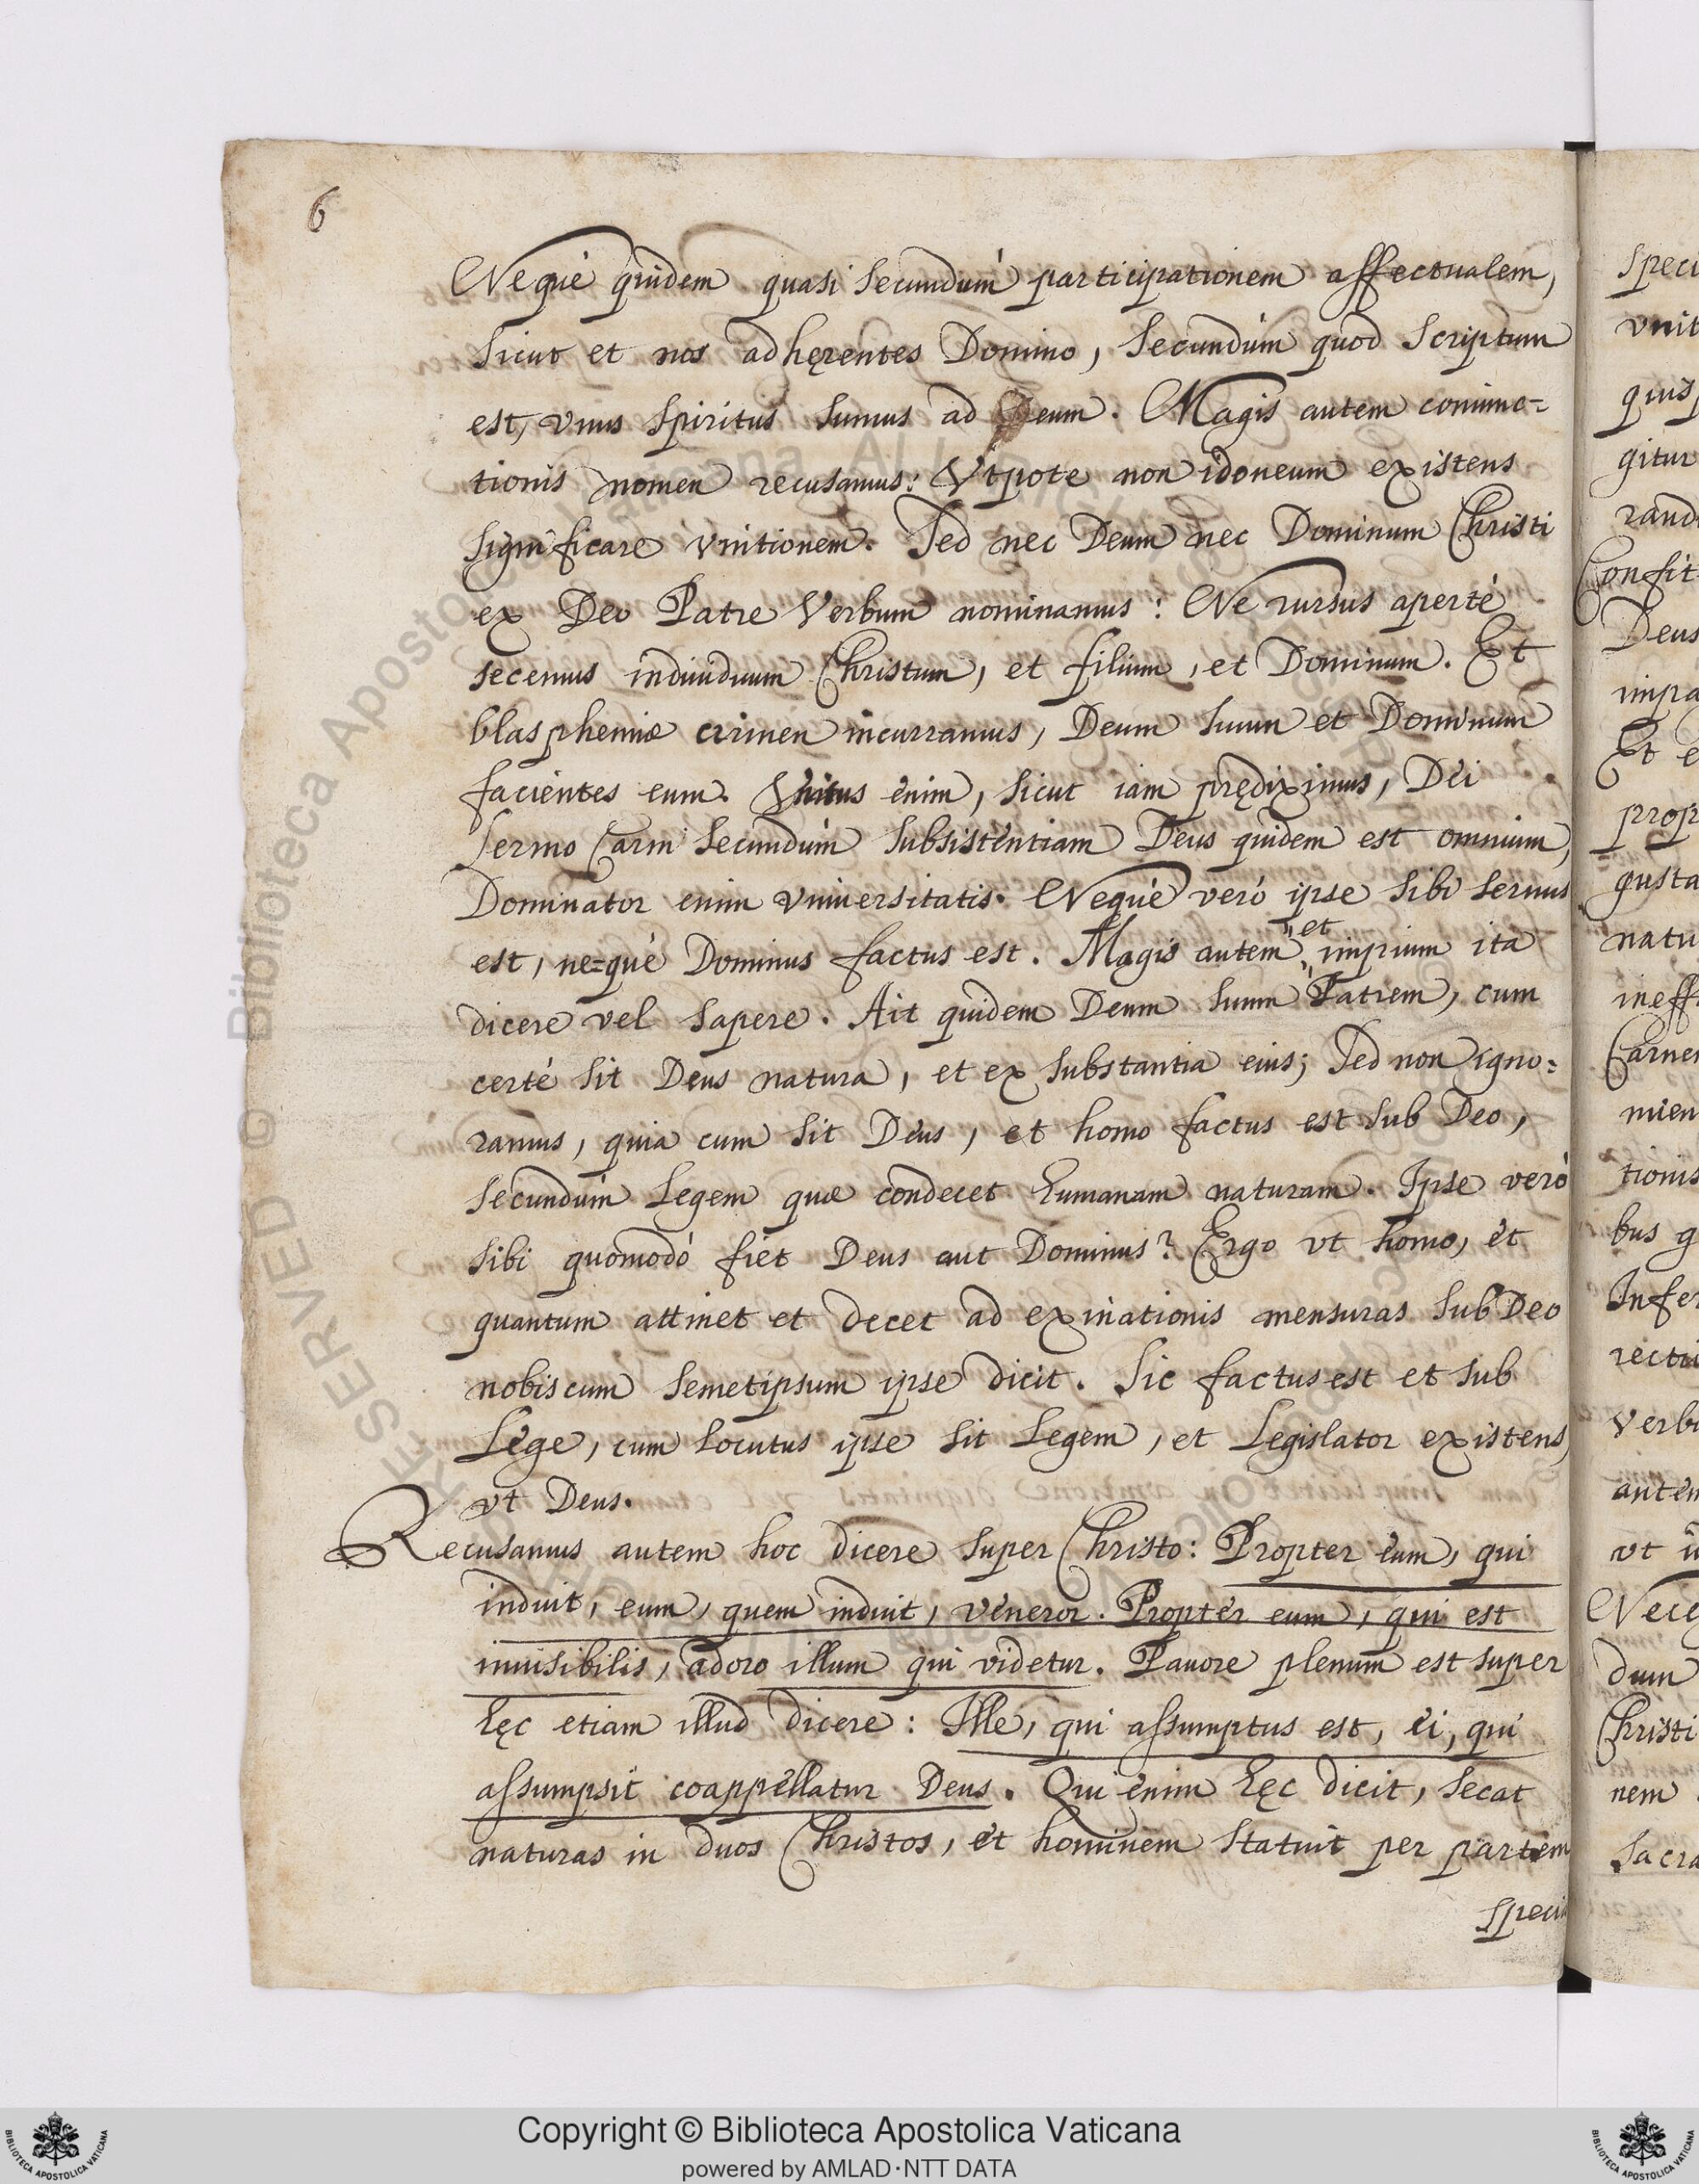 6
Nequè quidem quasi secundùm participationem affectualem,
sicut et nos adhęrentes Domino, secundùm quod scriptum
est, vnus spiritus sumus ad Deum. Magis autem coniunc=
tionis nomen recusamus: Vtpote non idoneum existens
significare vnitionem. Sed nec Deum nec Dominum Christi
ex Deo Patre Verbum nominamus: Ne rursus apertè
secemus indiuiduum Christum, et filium, et Dominum. Et
blasphemiæ crimen incurramus, Deum suum et Dominum
facientes eum. Vnitus enim, sicut iam prędiximus, Dei
sermo Carni secundùm subsistentiam Deus quidem est omnium,
Dominator enim vniuersitatis. Nequè verò ipse sibi seruus
est, ne=què Dominus factus est. Magis autem et impium ita
dicere vel sapere. Ait quidem Deum suum Patrem, cum
certè sit Deus natura, et ex substantia eius; Sed non igno=
ramus, quia cum sit Deus, et homo factus est sub Deo,
secundùm Legem quæ condecet humanam naturam. Ipse verò
sibi quomodò fiet Deus aut Dominus? Ergo vt homo, et
quantum attinet et decet ad exinationis mensuras sub Deo
nobiscum semetipsum ipse dicit. Sic factus est et sub
Lege, cum locutus ipse sit Legem, et Legislator existens,
vt Deus.
Recusamus autem hoc dicere super Christo: Propter eum, qui
induit, eum, quem induit, veneror. Propter eum, qui est
inuisibilis, adoro illum qui videtur. Pauore plenum est super
hęc etiam illud dicere: Ille, qui assumptus est, ei, qui
assumpsit coappellatur Deus. Qui enim hęc dicit, secat
naturas in duos Christos, et hominem statuit per partem
speci
speci
vnit
quis
gitur
rand
Confit
Deus
impa
Et e
prop
gusta
natu
ineff
Carne
mien
tionis
bus q
Infer
recti
verb
autem
vt
Nece
dum
Christi
nem
sacra
© Biblioteca Apostolica Vaticana ALL RIGHTS RESERVED
Copyright © Biblioteca Apostolica Vaticana
powered by AMLAD·NTT DATA
BIBLIOTECA APOSTOLICA VATICANA
BIBLIOTECA APOSTOLICA VATICANA